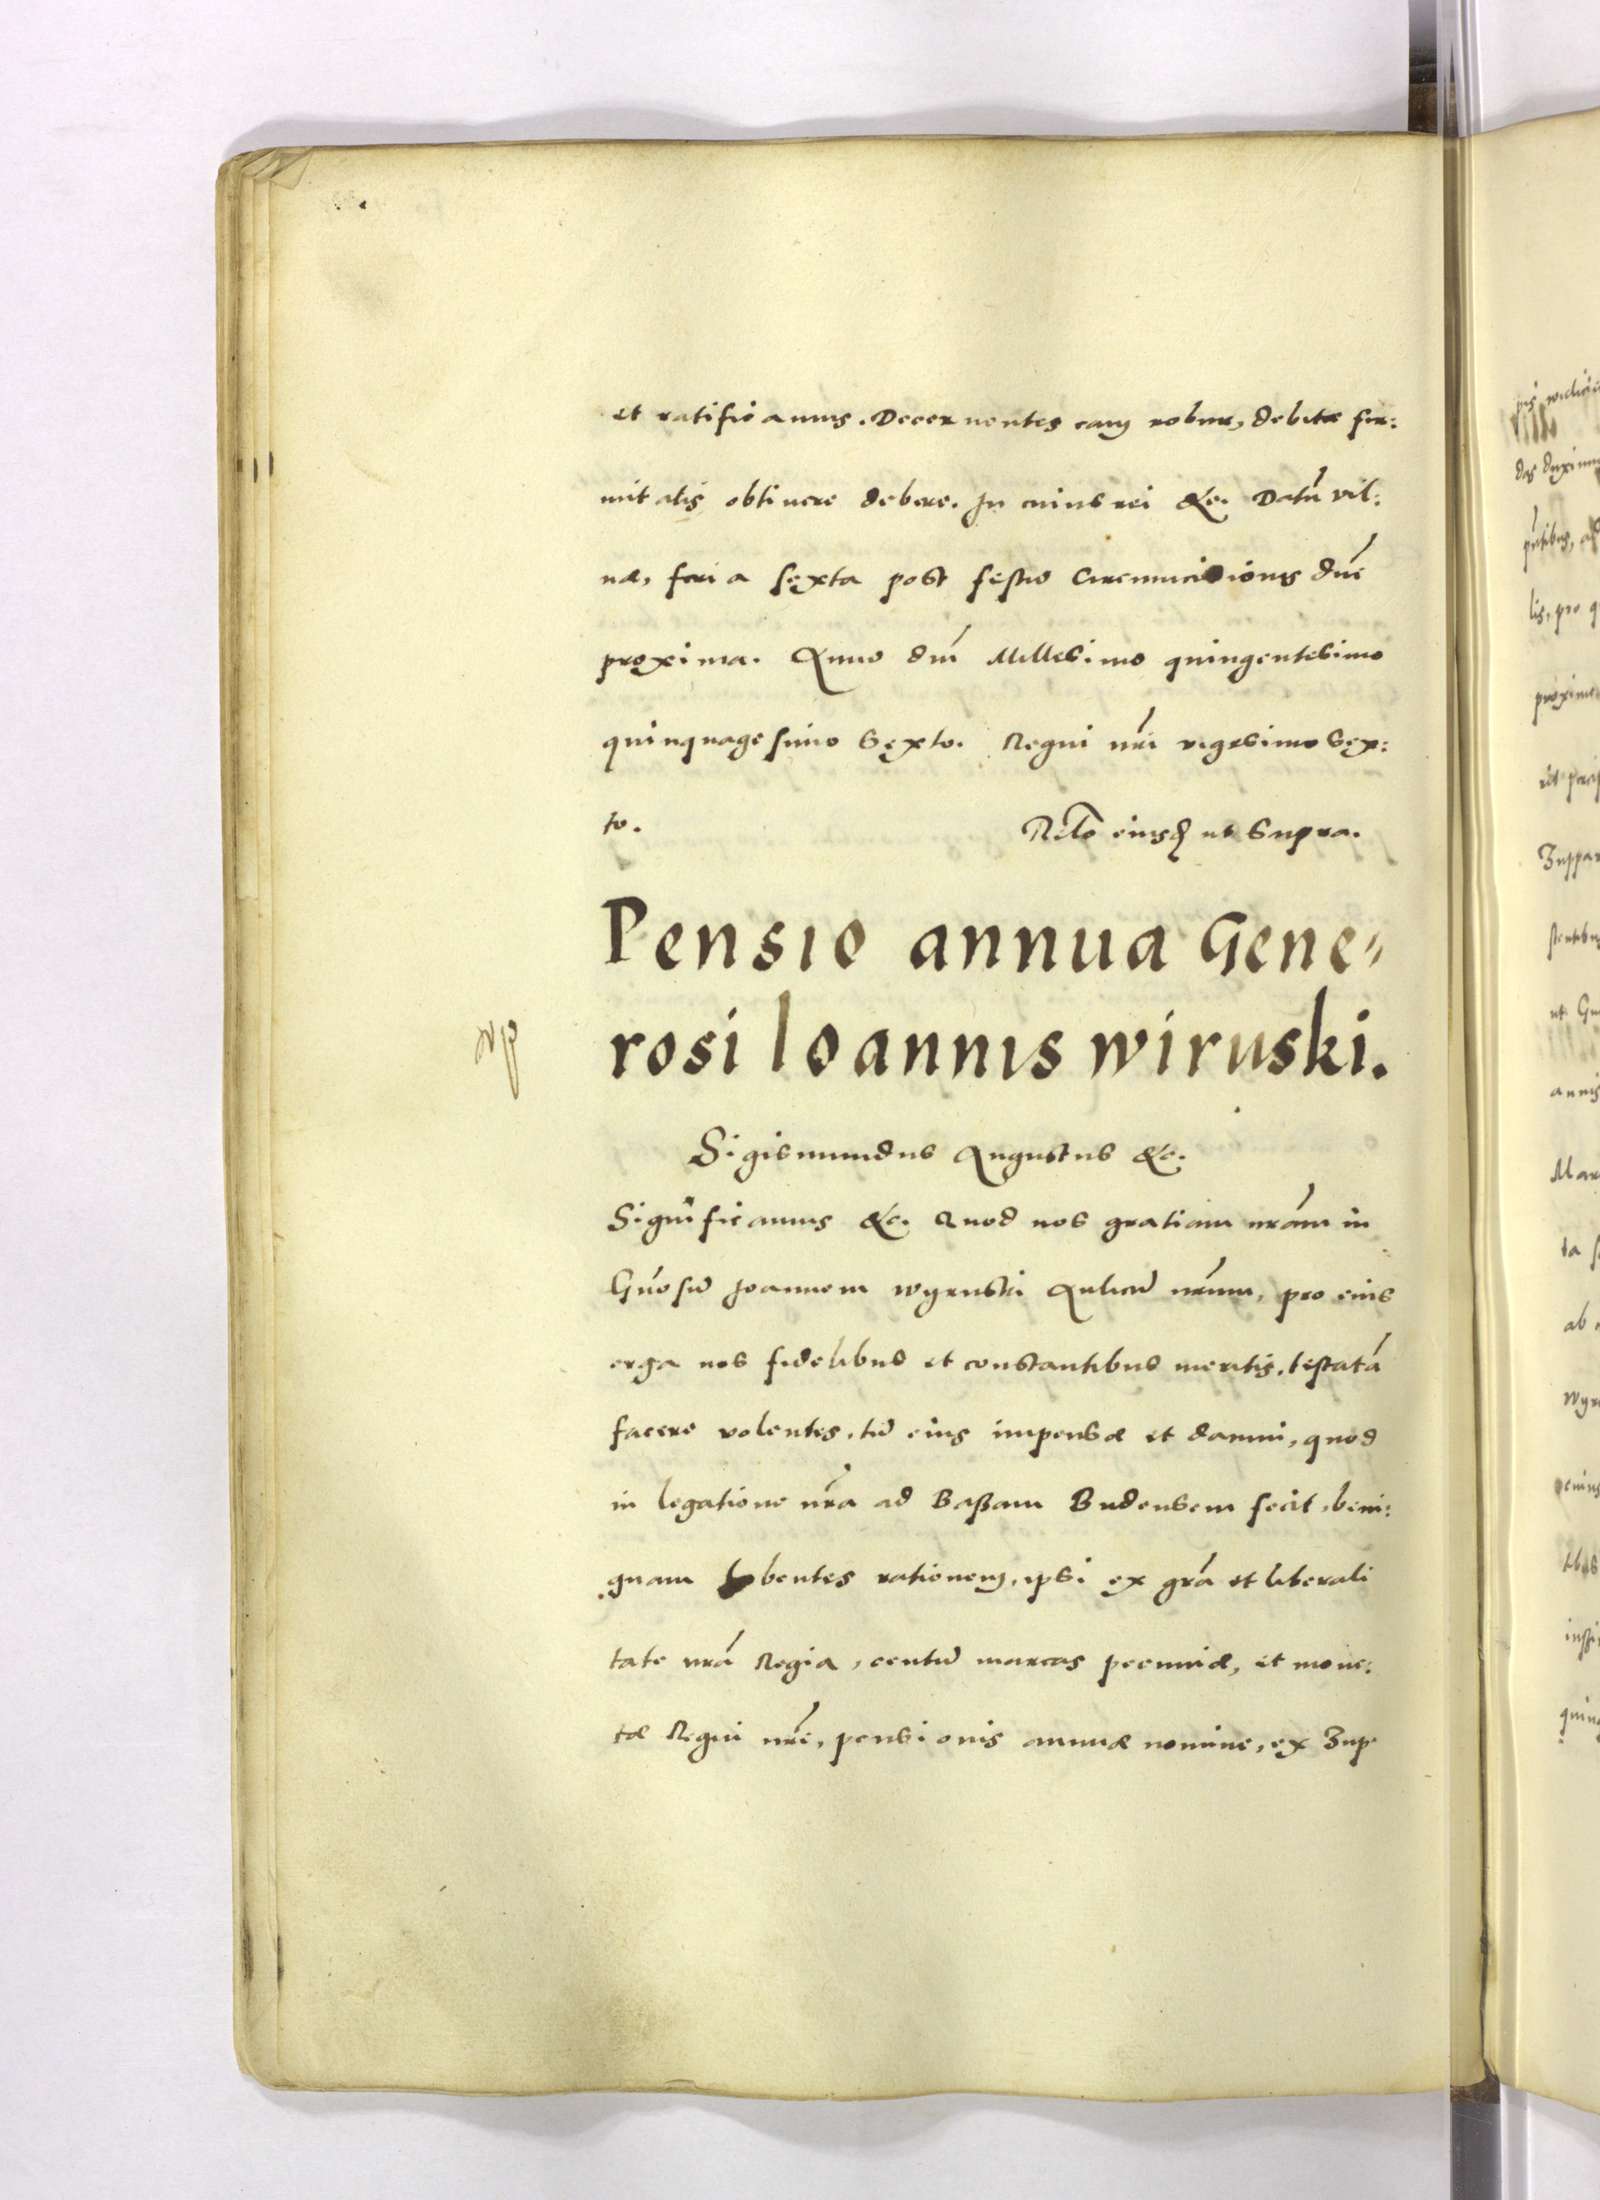 et ratificamus. Decernentes eam robur, debitæ fir:
mitatis obtinere debere. In cuius rei &c. Datū Vil:
næ, feria sexta post festū Circumcisionis dnı̄ce
proxima. Anno dnī Millesimo quingentesimo
quinquagesimo Sexto. Regni nr̄i vigesimo Sex:
to. Relō eiusd ut Supra.
Pensio annua Gene=
rosi Ioannis wiruski.
Sigismundus Augustus &c.
Significamus &c. Quod nos gratiam nrām in
Gn̄osū Joannem wyruski Aulicū nrūm, pro eius
erga nos fidelibus et constantibus meritis, testatā
facere volentes, tū eius impensæ et damni, quod
in legatione nrā ad Baßam Budensem fecit, beni:
gnam habentes rationem, ipsi ex grā et liberali
tate nrā Regia, centū marcas pecuniæ, et mone:
tæ Regni nrī, pensionis annuæ nomine, ex Zup
proxime
Zuppar
annis
ab
quin